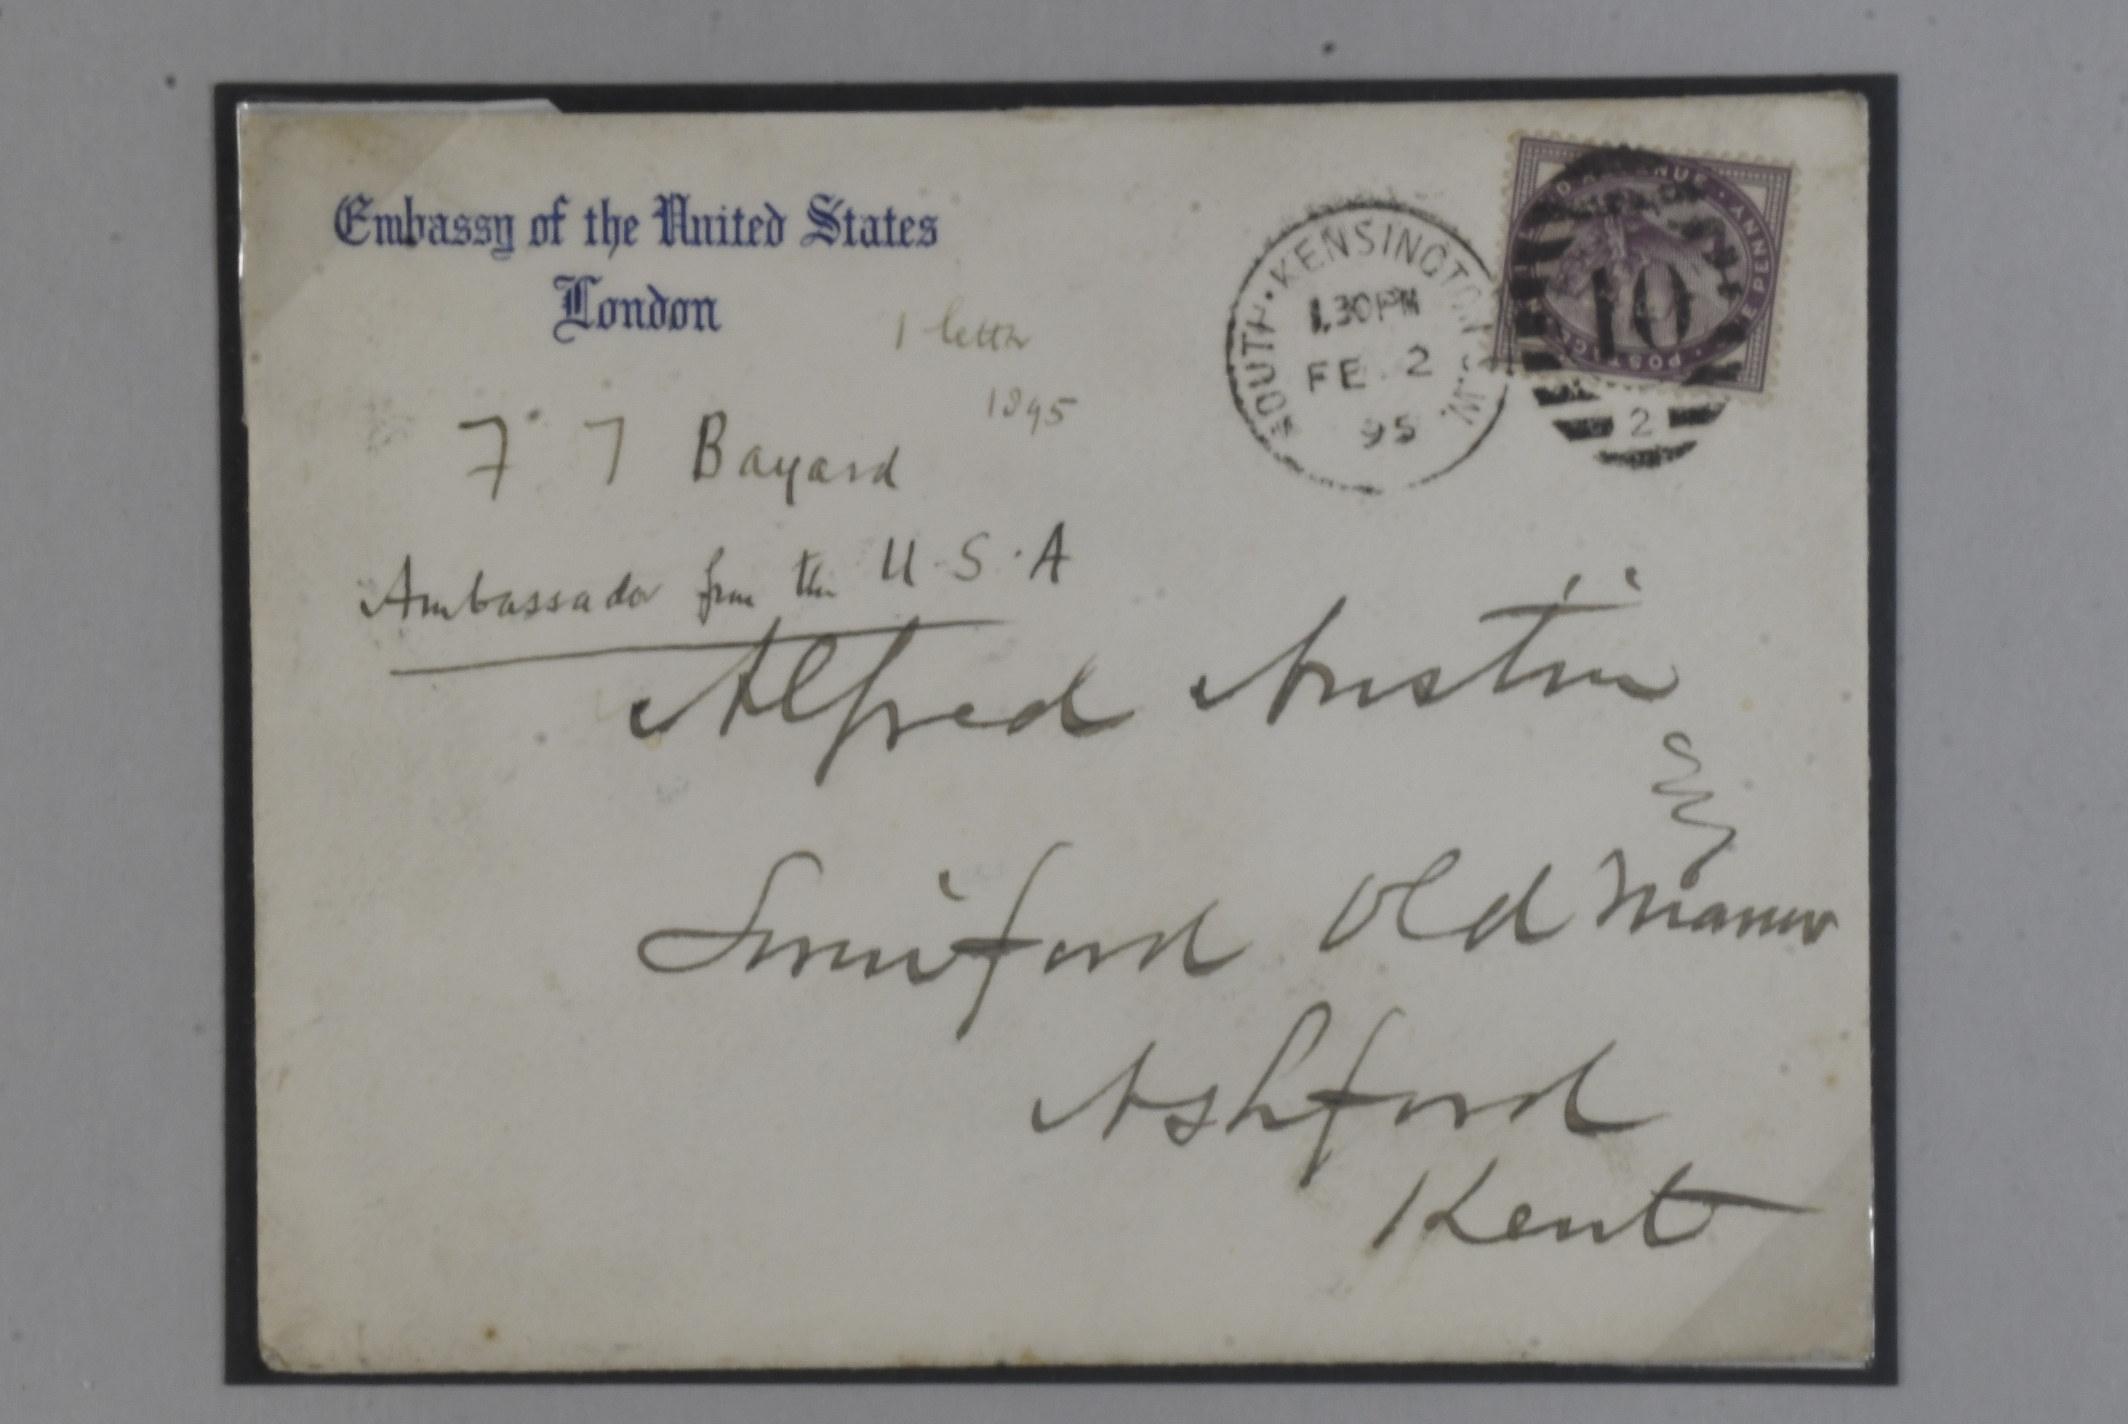 Embassy of the United States
London
1 letter
1895
F T Bayard
Ambassador from the U.S.A
SOUTH KENSINGTON
1.30PM
FE 2
95
10
2
POSTAGE AND REVENUE · ONE PENNY
Alfred Austin
Swinford Old Manor
Ashford
Kent